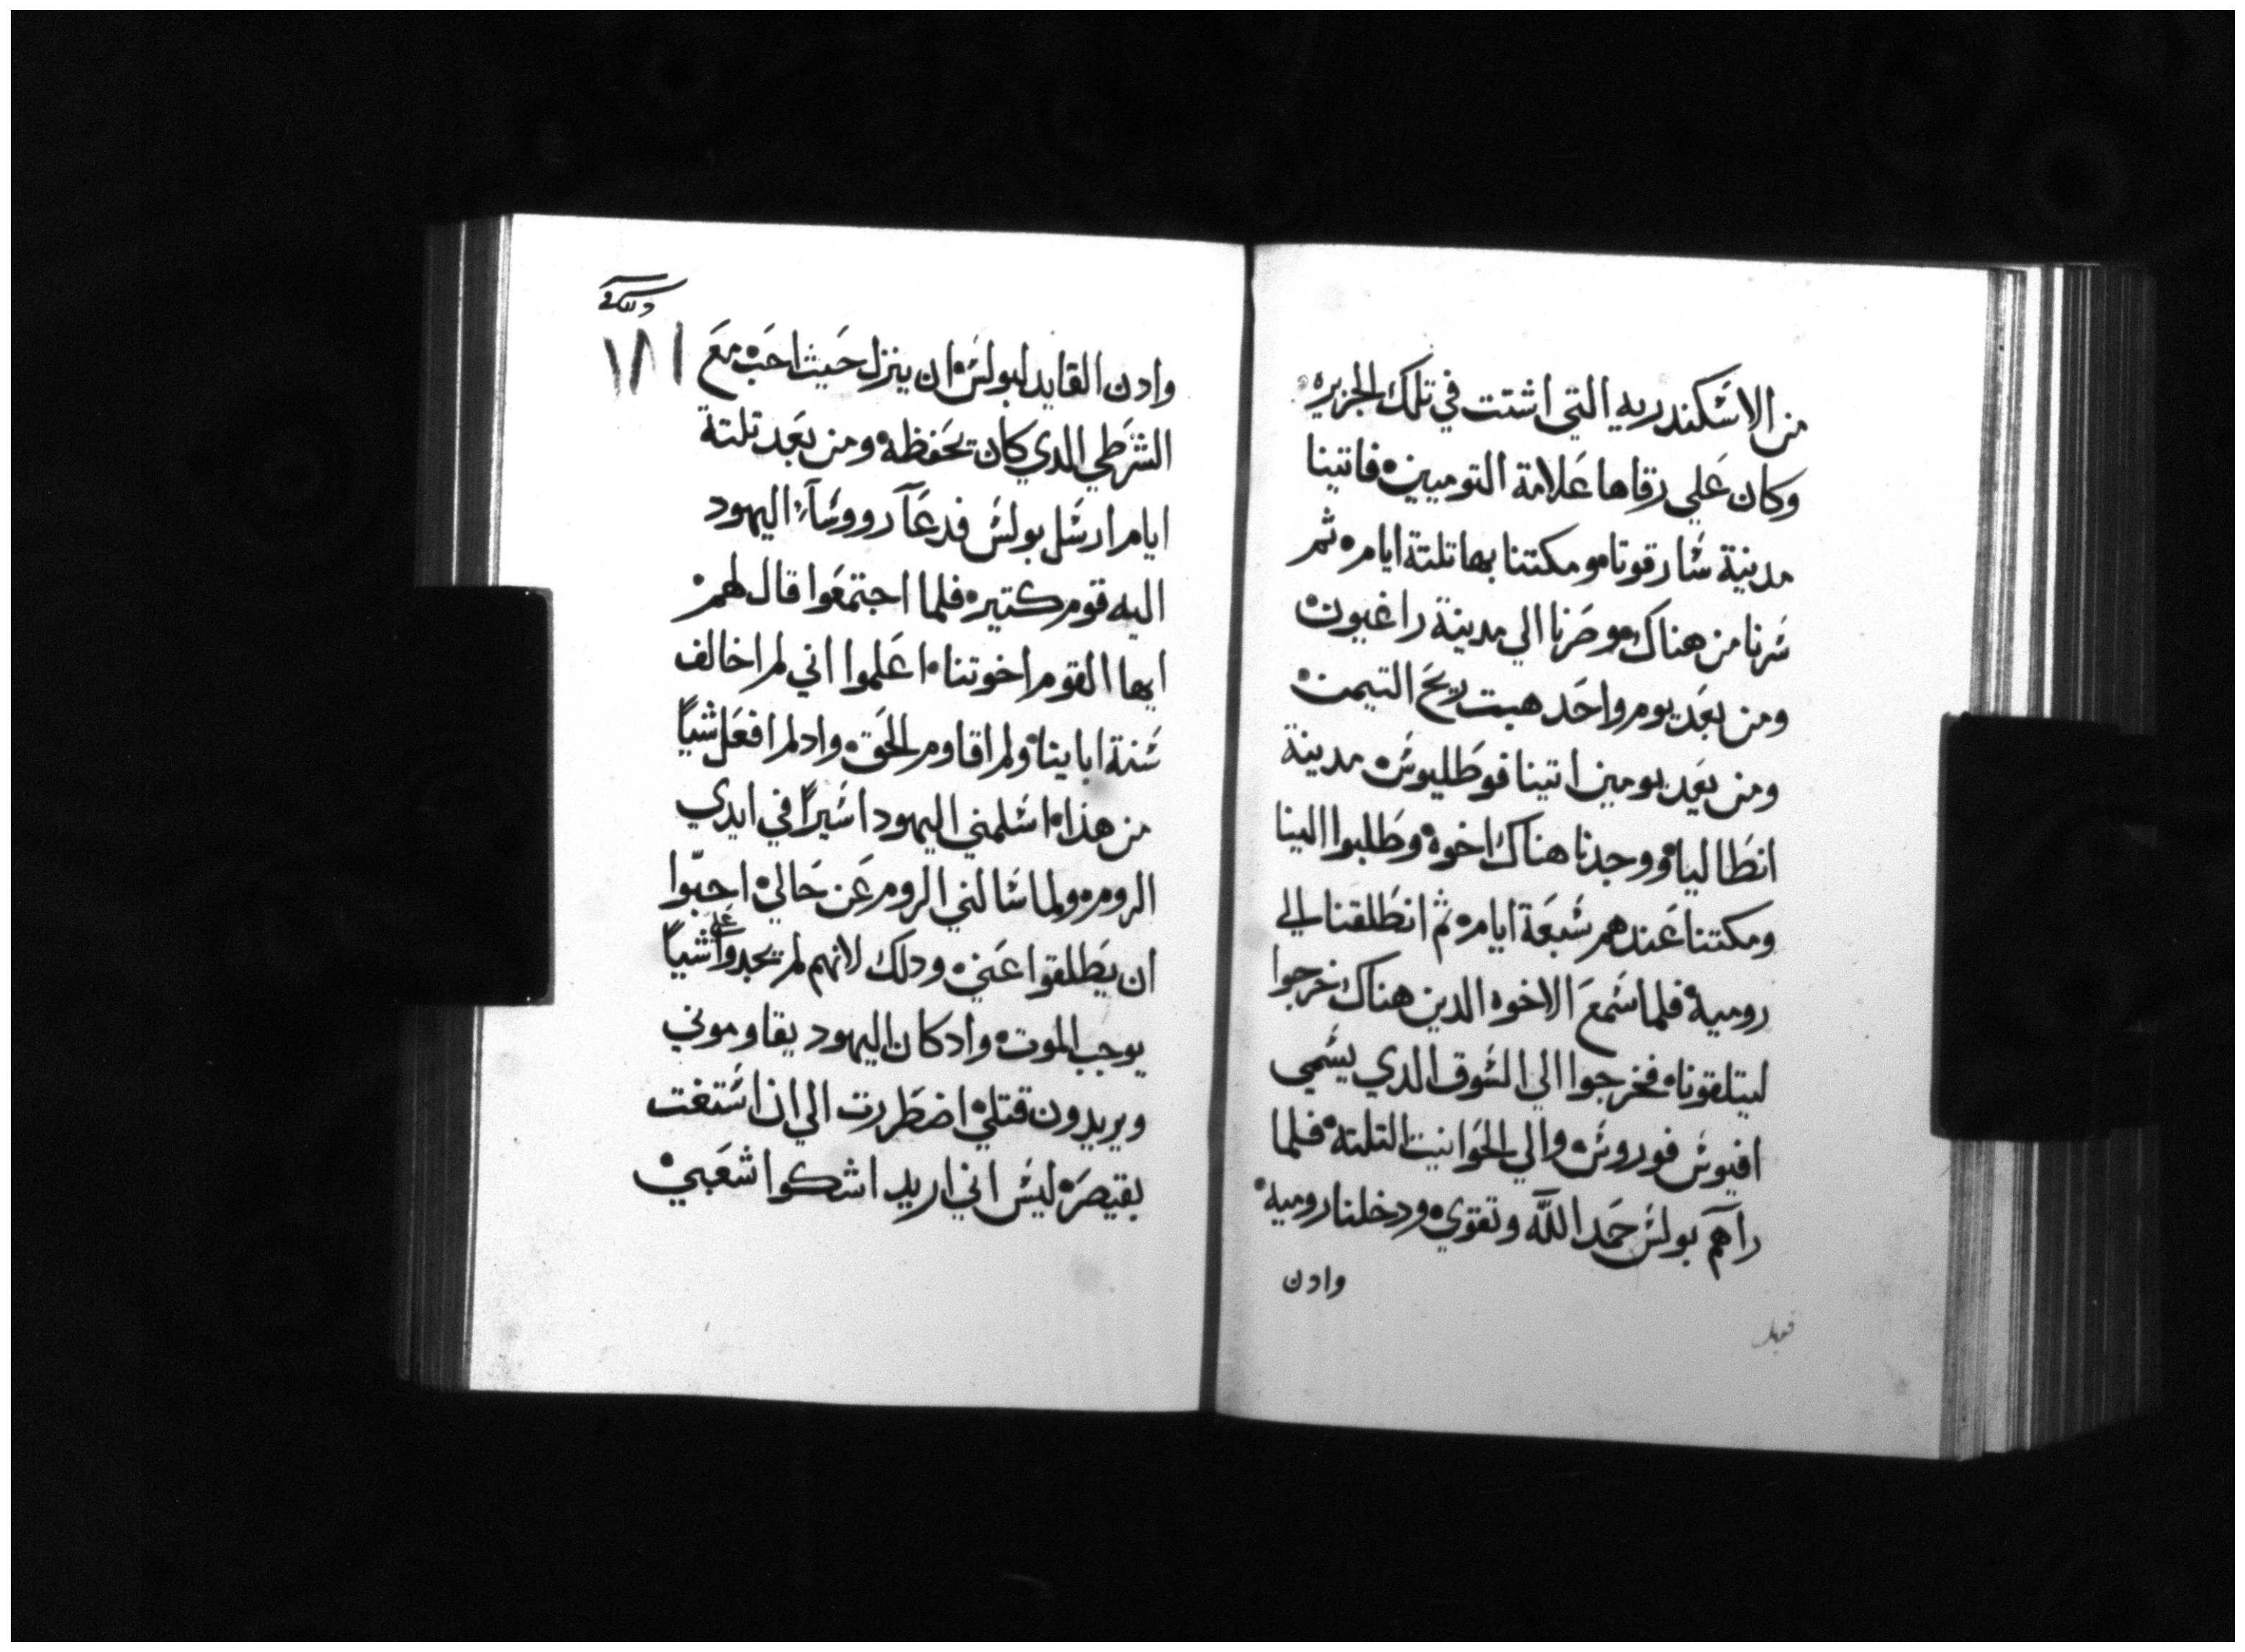 من الاسكندريه التي اشتت في تلك الجزيره
وكان علي رقاها علامة التوميين فاتينا
مدنية ساراقوتا ومكتنا بها تلتة ايام ثم
سرنا من هناك وصرنا الي مدينة راغيون
ومن بعد يوم واحد هبت ريح التيمن
ومن بعد يومين اتينا فوطليوس مدينة
انطاليا ووجدنا هناك اخوه وطلبوا الينا
ومكتنا عندهم سبعة ايام ثم انطلقنا الي
روميه فلما سمع الاخوه الدين هناك خرجوا
ليتلقونا فخرجوا الي السوق الدي يسمي
افيوس فوروس والي الحوانيت التلته فلما
رآهم بولس حمد اللّه وتقوي ودخلنا روميه
وادن
١٨١
وادن القايد لبولس ان ينزل حيث احب مع
الشرطي الدي كان يحفظه ومن بعد تلتة
ايام ارسل بولس فدعآ رووسآء اليهود
اليه قوم كتير فلما اجتمعوا قال لهم
ايها القوم اخوتنا اعلموا اني لم اخالف
سنة اباينا ولم اقاوم الحق واد لم افعل شياً
من هذا اسلمني اليهود اسيراً في ايدي
الروم ولما سالني الروم عن حالي احبّوا
ان يطلقوا عني ودلك لانهم لم يجدوا علي شياً
يوجب الموت واد كان اليهود يقاوموني
ويريدون قتلي اضطررت الي ان استغت
بقيصر ليس اني اريد اشكوا شعبي